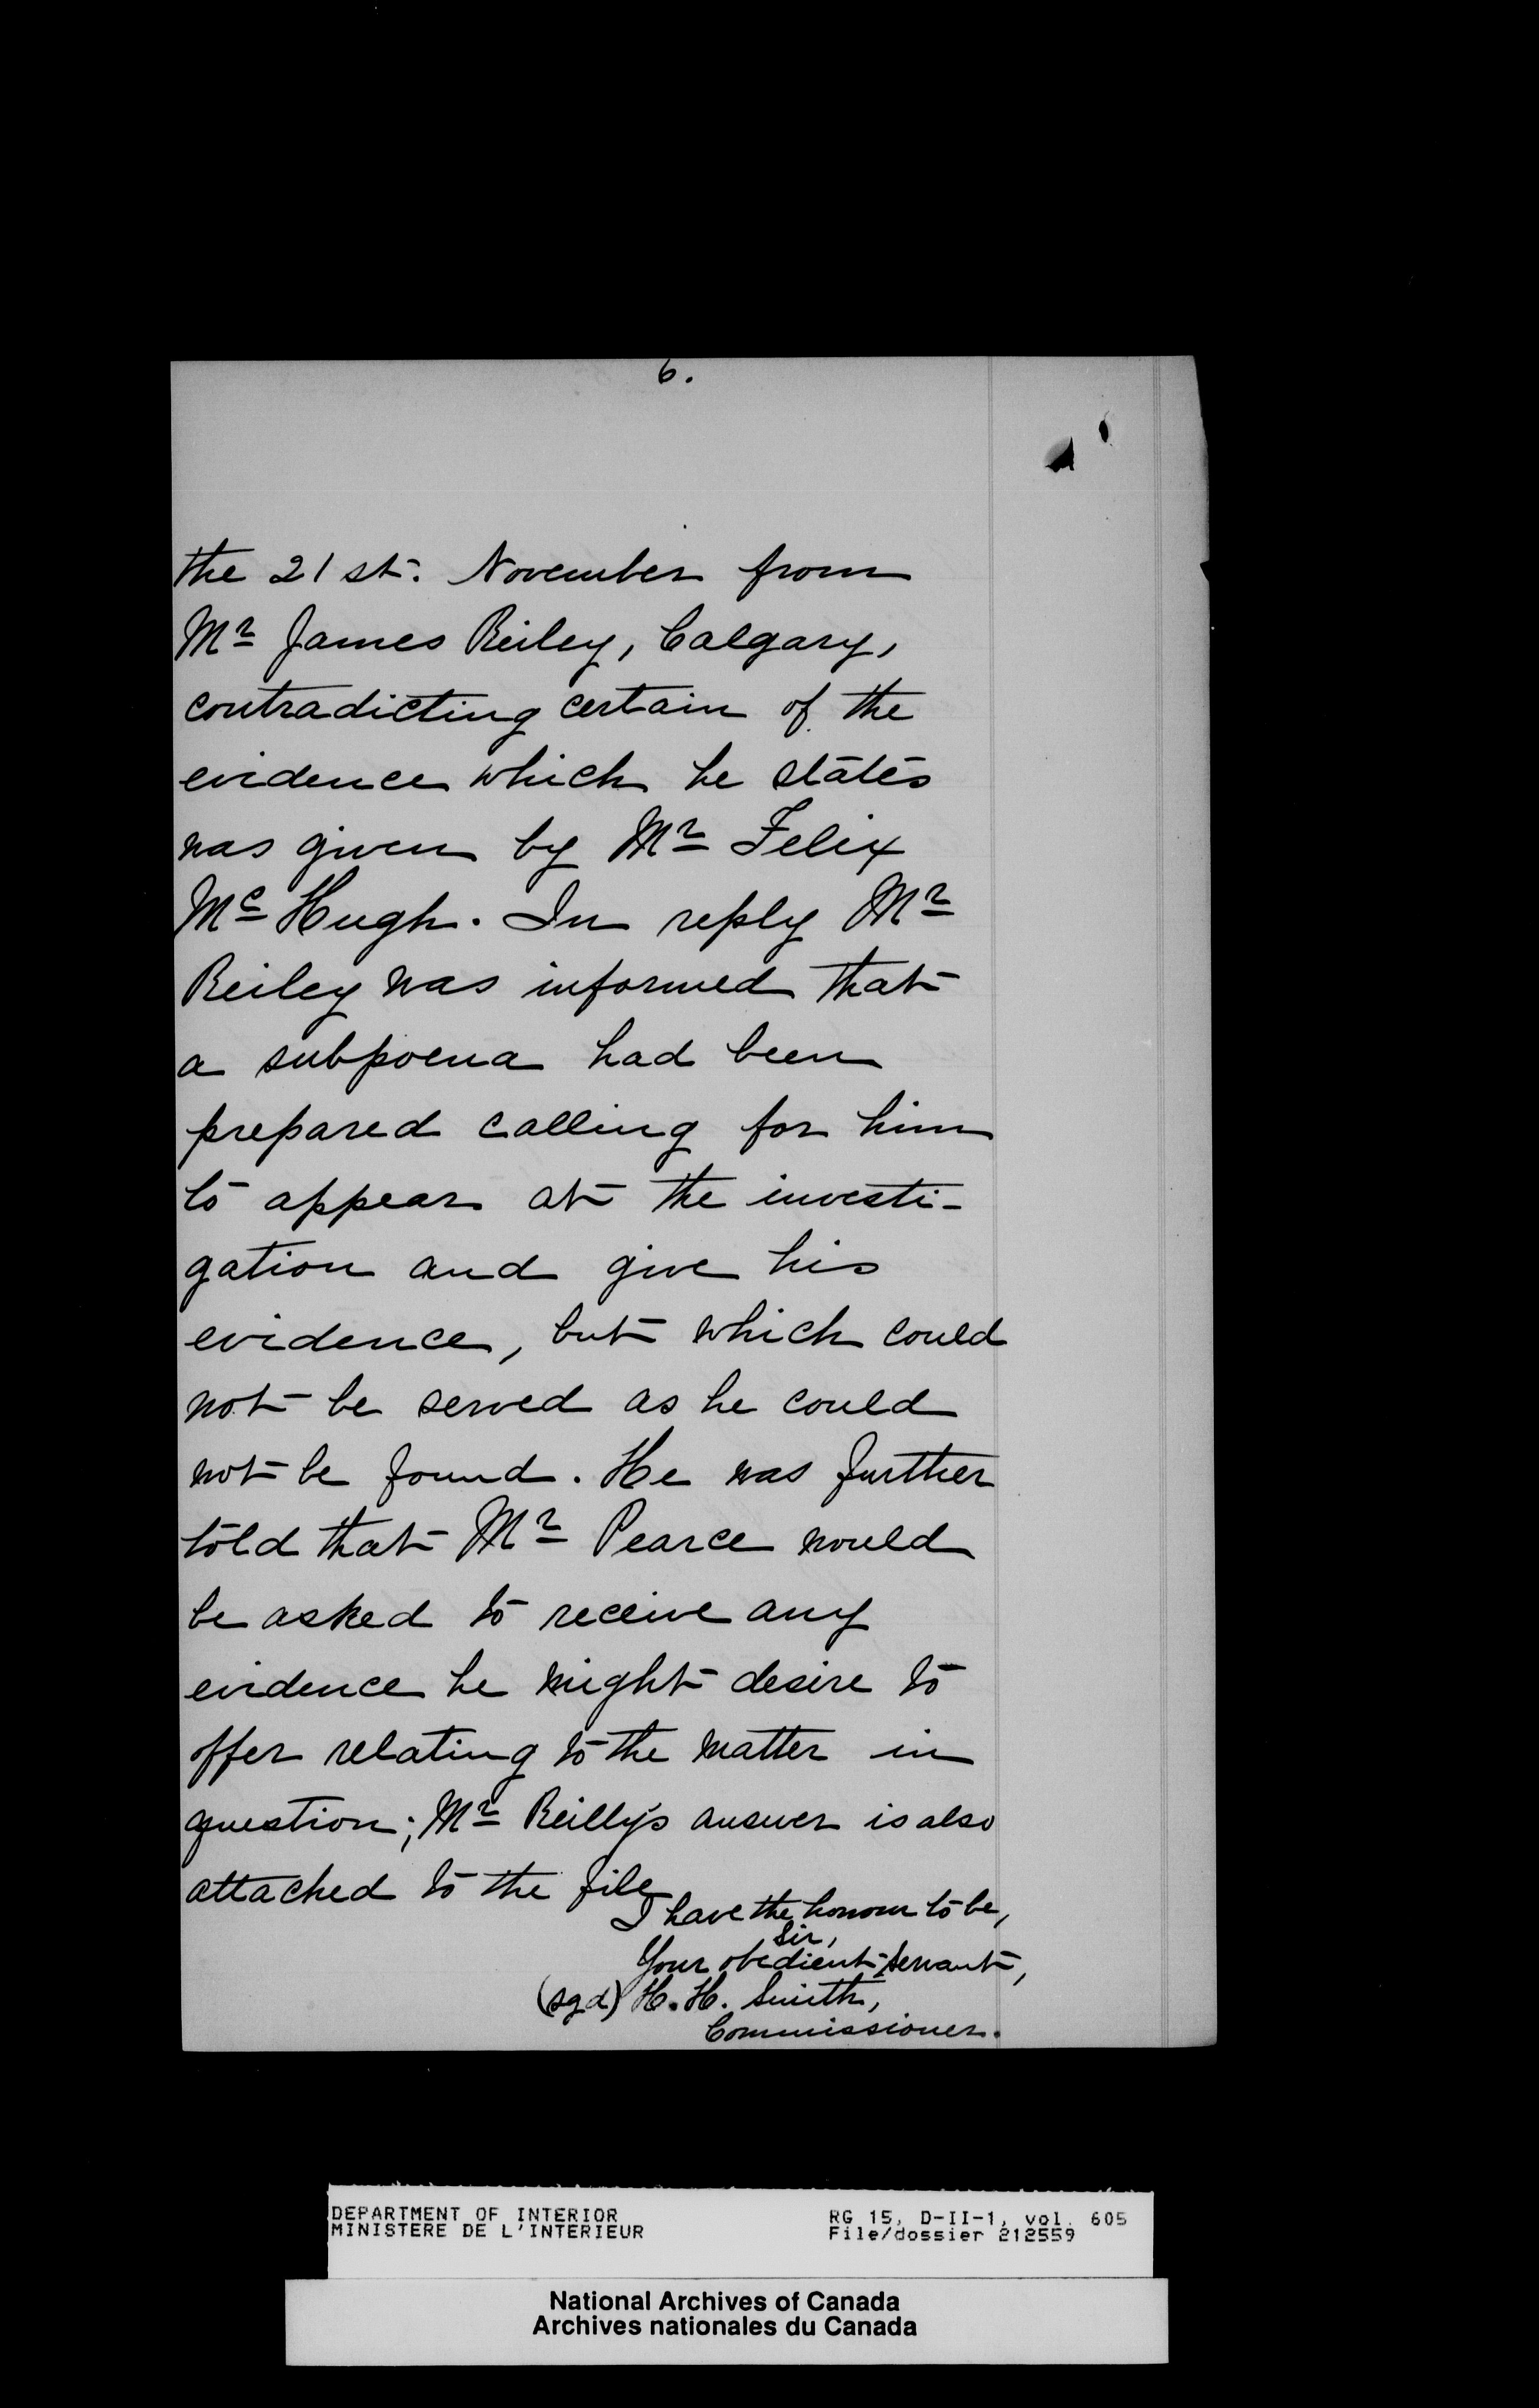 6.
the 21st. November from
Mr James Reiley, Calgary,
contradicting certain of the
evidence which he states
was given by Mr Felix
Mc Hugh. In reply Mr
Reiley was informed that
a subpoena had been
prepared calling for him
to appear at the investi-
gation and give his
evidence, but which could
not be served as he could
not be found. He was further
told that Mr Pearce would
be asked to receive any
evidence he might desire to
offer relating to the matter in
question; Mr Reilly's answer is also
attached to the file
I have the honour to be,
Sir,
Your obedient servant,
(sgd) H. H. Smith,
Commissioner.
DEPARTMENT OF INTERIOR RG 15, D-II-1, vol. 605
MINISTERE DE L'INTERIEUR File/dossier 212559
National Archives of Canada
Archives nationales du Canada